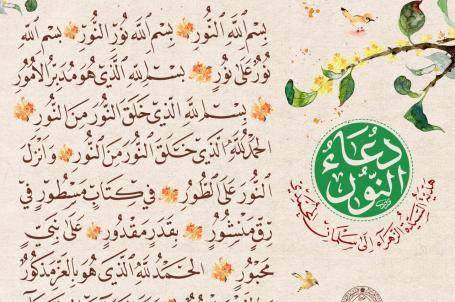 بِسْمِ اللَّهِ النُّورِ بِسْمِ اللَّهِ نُورِ النُّورِ بِسْمِ اللَّهِ
نُورٌ عَلَى نُورٍ بِسْمِ اللَّهِ الَّذِي هُوَ مُدَبِّرُ الْأُمُورِ
بِسْمِ اللَّهِ الَّذِي خَلَقَ النُّورَ مِنَ النُّورِ
الْحَمْدُ لِلَّهِ الَّذِي خَلَقَ النُّورَ مِنَ النُّورِ وَأَنْزَلَ
النُّورَ عَلَى الطُّورِ فِي كِتَابٍ مَسْطُورٍ فِي
رَقٍّ مَنْشُورٍ بِقَدَرٍ مَقْدُورٍ عَلَى نَبِيٍّ
مَحْبُورٍ الْحَمْدُ لِلَّهِ الَّذِي هُوَ بِالْعِزِّ مَذْكُورٌ
دُعَاءُ
النُّور
هدية السيدة الزهراء إلى سلمان المحمدي